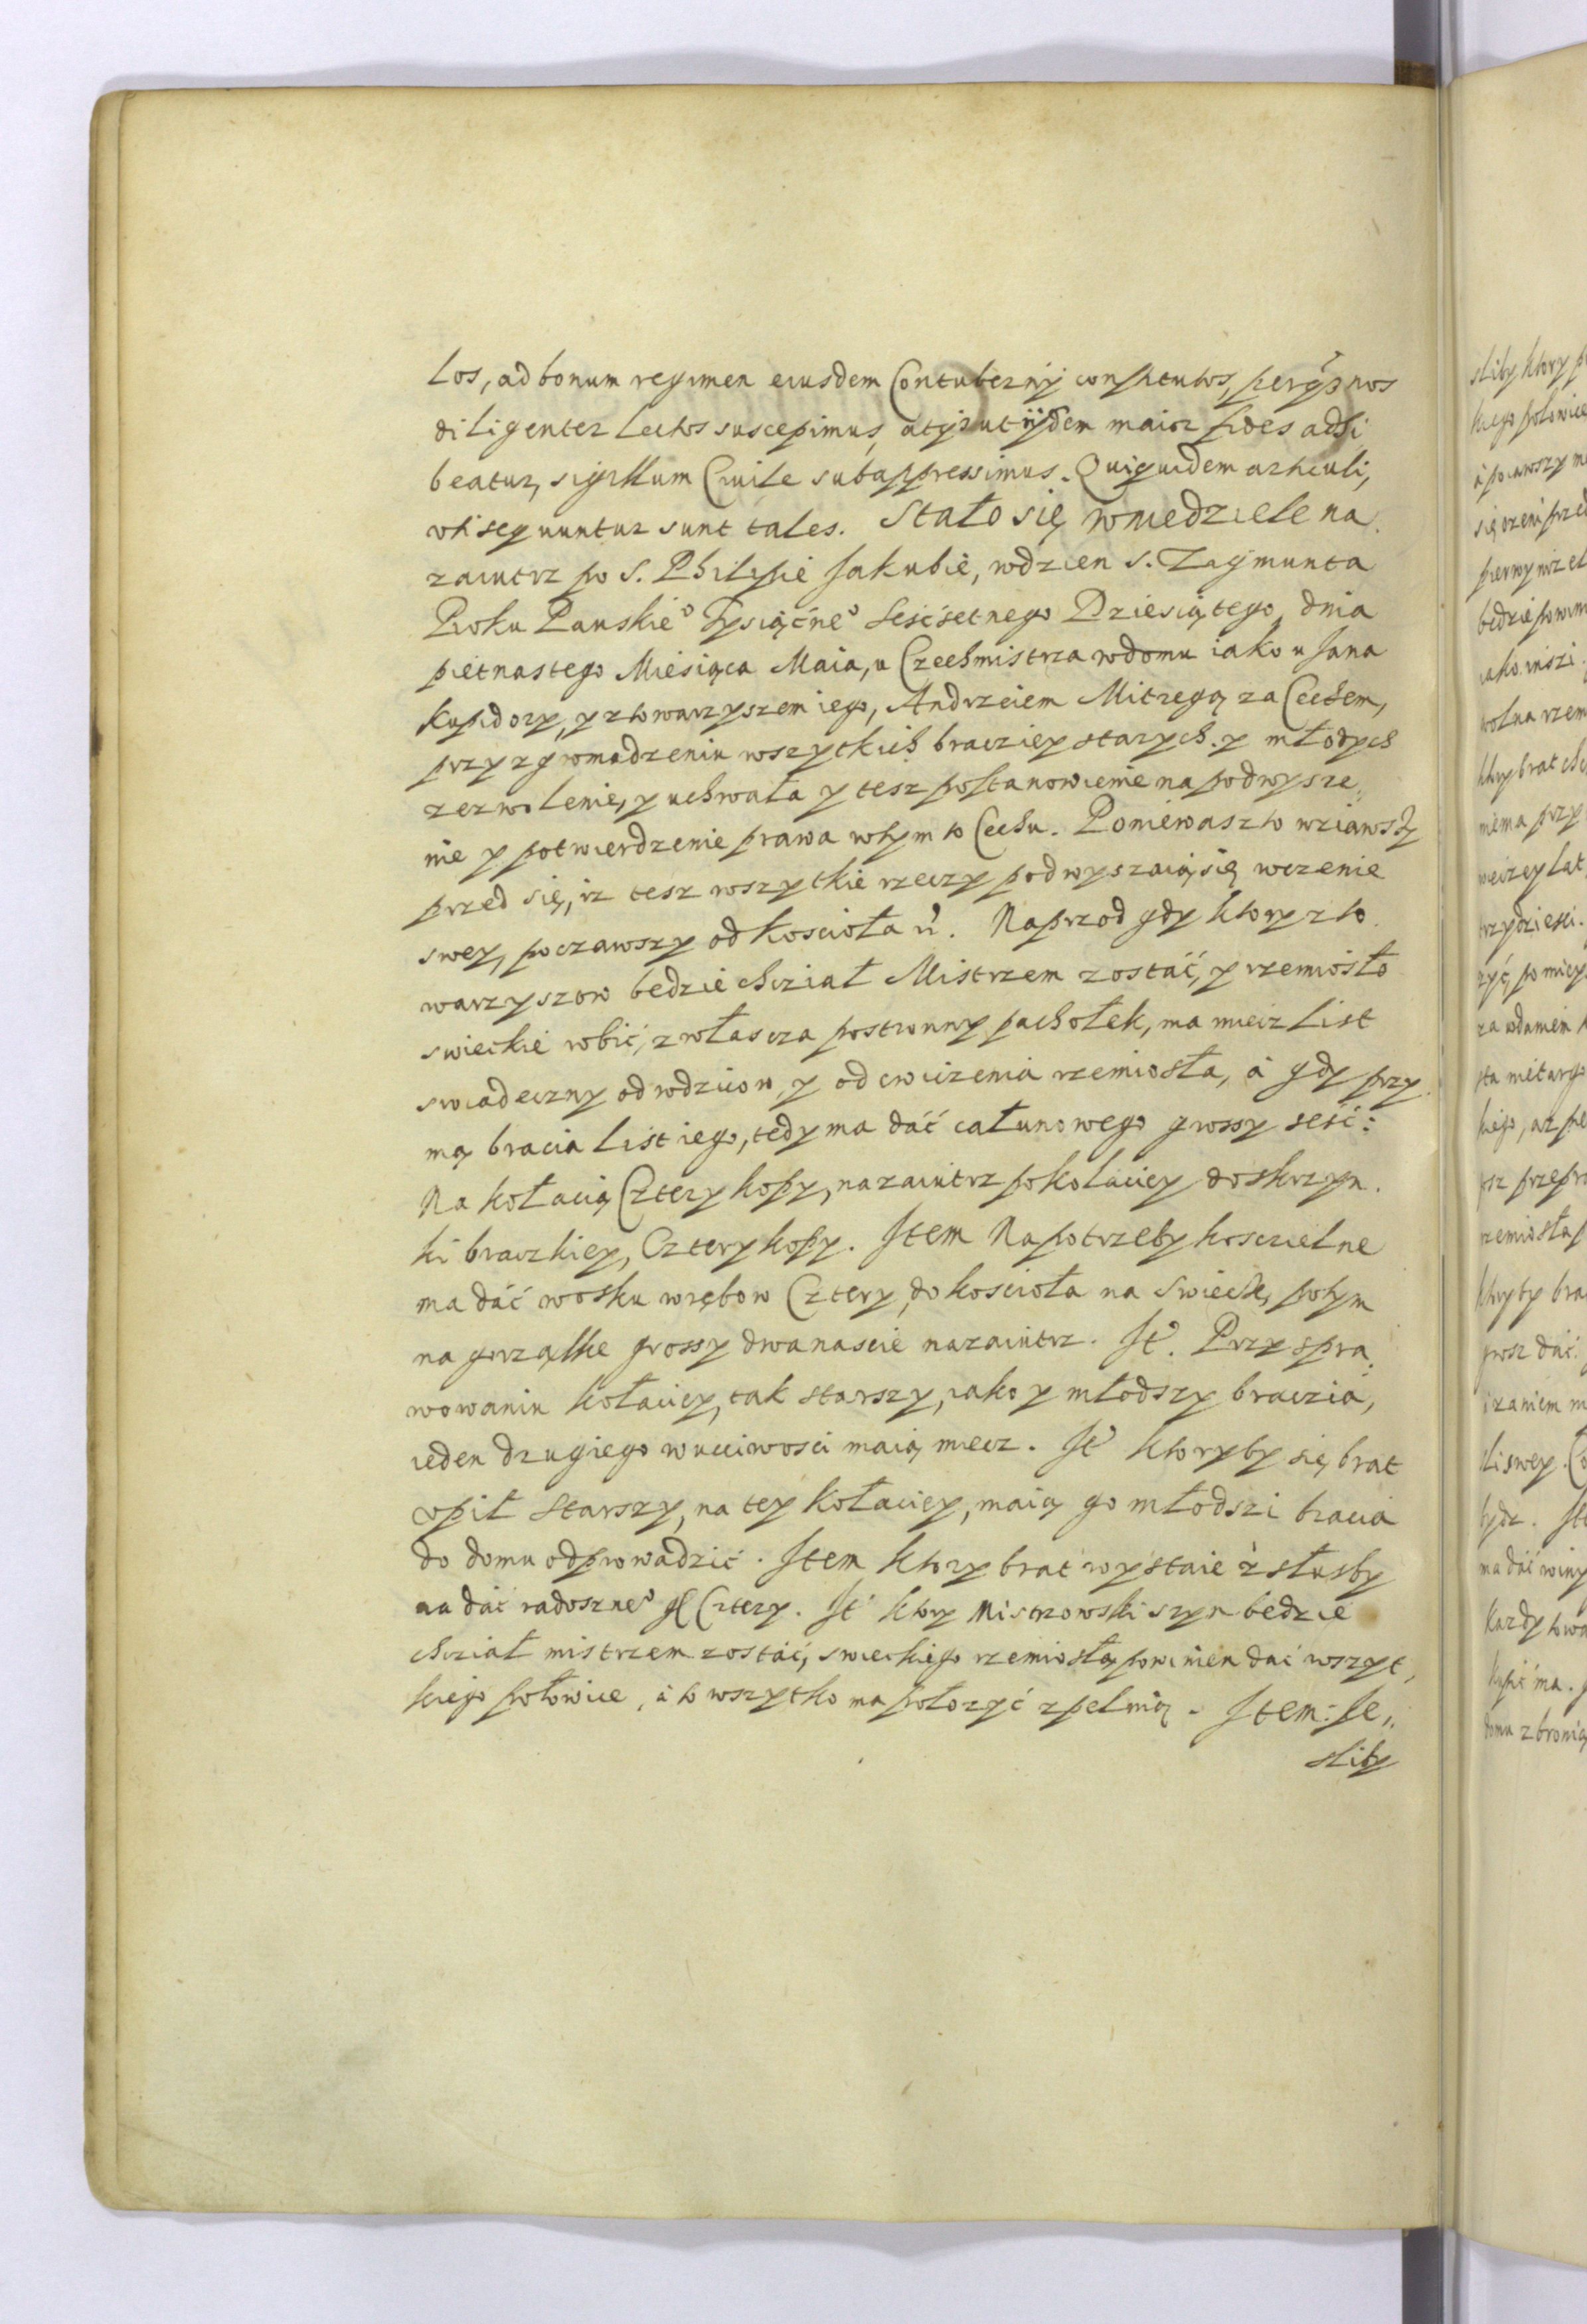 los, ad bonum regimen eiusdem Contubernÿ constitutos, per nos
diligenter lectos suscepimus, atqz ut ijsdem maior fides adhi
beatur, sigillum Ciuile subappressimus. Qui quidem articuli,
vti sequuntur sunt tales. Stało się w niedziele na
zaiutrz po S. Philipie Jakubie, w dzien S. Zagmunta
Roku Panskie° Tysiącne° sescsetnego Dziesiątego, dnia
pietnastego Miesiąca Maia, u Czechmistrza w domu iako u Jana
Kupidory, y z towarzyszem iego, Andrzeiem Mitręgą za Cechem,
przy zgromadzeniu wszytkich bracziey starych. y młodych
zezwolenie, y uchwała y tesz postanowienie na podwysze,,
nie y potwierdzenie prawa w tym to Cechu. Poniewasz to wziawszy
przed się, iz tesz wszytkie rzeczy podwyszaią się w czenie
swey, poczawszy od kosciola
Naprzod gdy ktory z to
warzyszow bedzie chciał Mistrzem zostać, y rzemiosło
swieckie robić, zwłascza postronny pachołek, ma miecz list
swiadeczny od rodzicow, y od cwiczenia rzemiosła, à gdy przy
mą bracia list iego, tedy ma dáć całunowego grossy sesć:
Na kołacią Cztery kopy, nazaiutrz po kolaciey do skrzyn.
ki braczkiey, Cztery kopy. Item Na potrzeby koscielne
ma dáć wosku wrębow Cztery, do kosciola na swiece, potym
na gorząłke grossy dwanascie nazaiutrz. It°. Przy spra
wowaniu kołaciey, tak starszy, iako y młodszy braczia,
ieden drugiego w ucciwosci maią miecz. It° ktoryby się brat
opił starszy, na tey kołaciey, maią go młodszi bracia
do domu odprowadzić. Item ktory brat wystaie z słusby
ma dáć radoszne° gl Cztery. It° ktory Mistrzowski szyn bedzie
chciał mistrzem zostać, swieckiego rzemiosła, powinien dać wszyt,
kiego połowice, à to wszytko ma położyć z pełnią. Item: Je,,
sliby